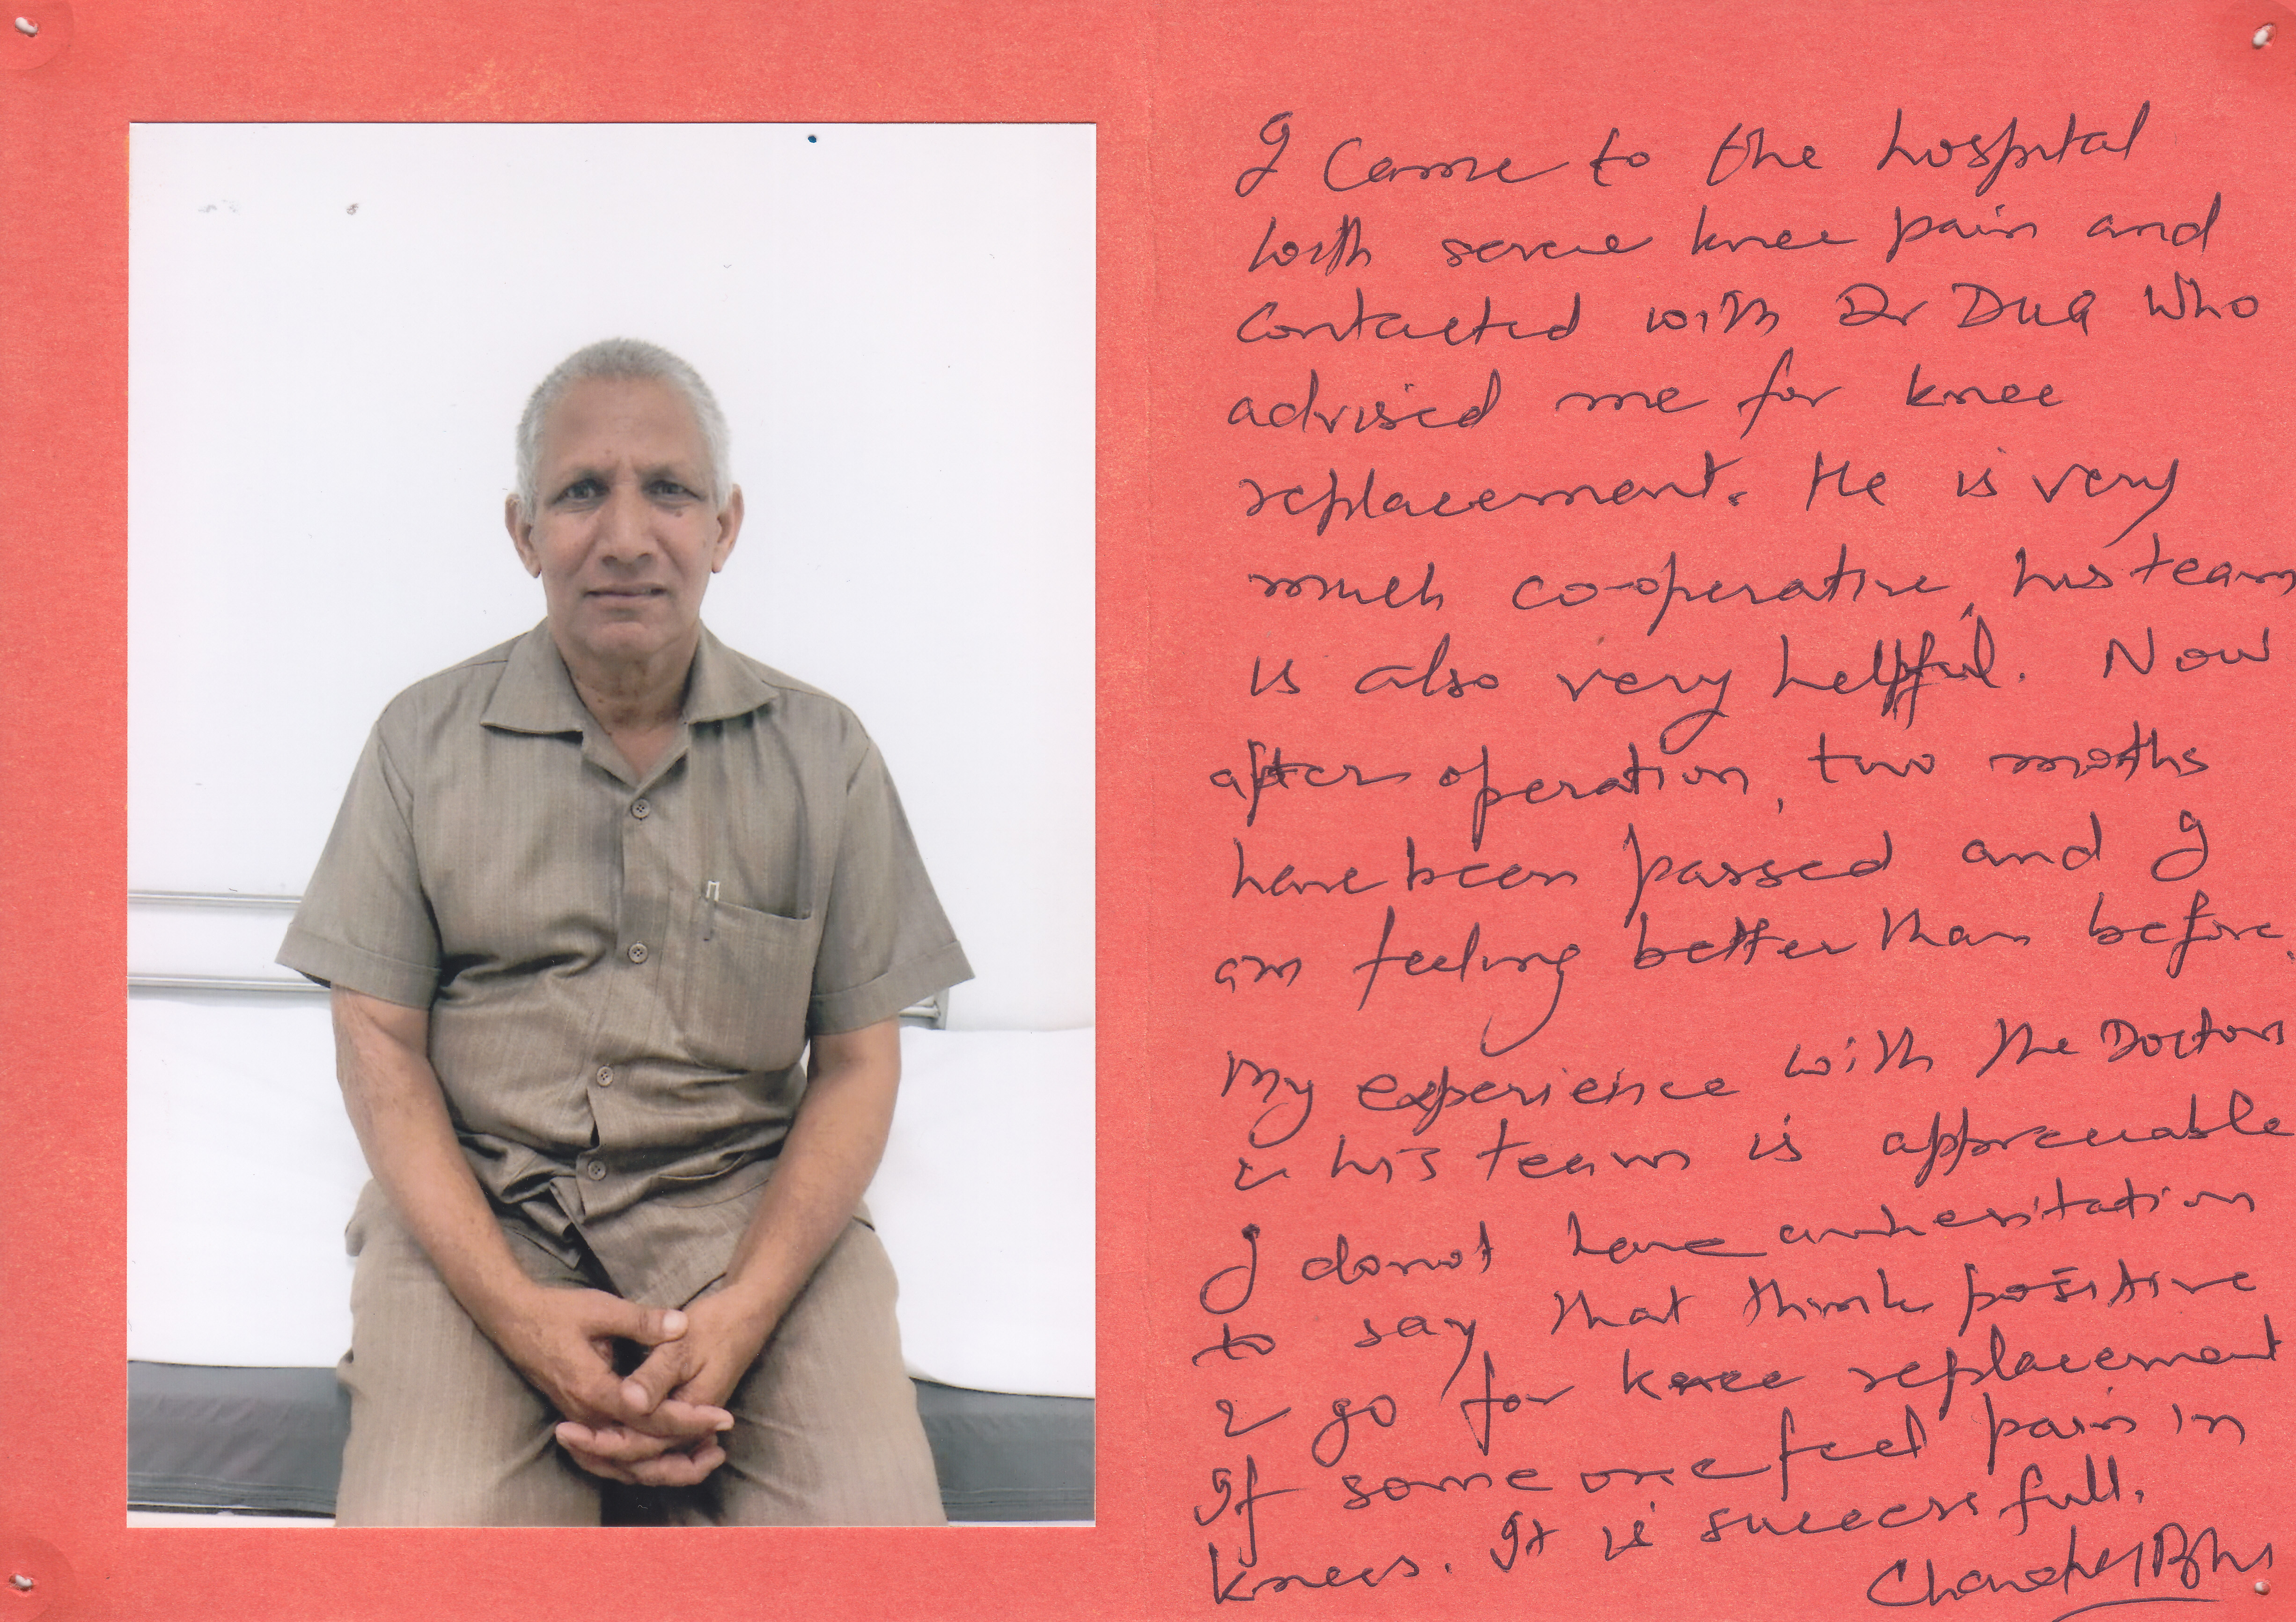 I came to the hospital
with severe knee pain and
contacted with Dr Dua who
advised me for knee
replacement. He is very
much co-operative, his team
is also very helpful. Now
after operation, two moths
have been passed and I
am feeling better than before.
My experience with the Doctors
& his team is appreciable
I donot have anhesitation
to say that think positive
& go for knee replacement
If some one feel pain in
knees. It is successfull.